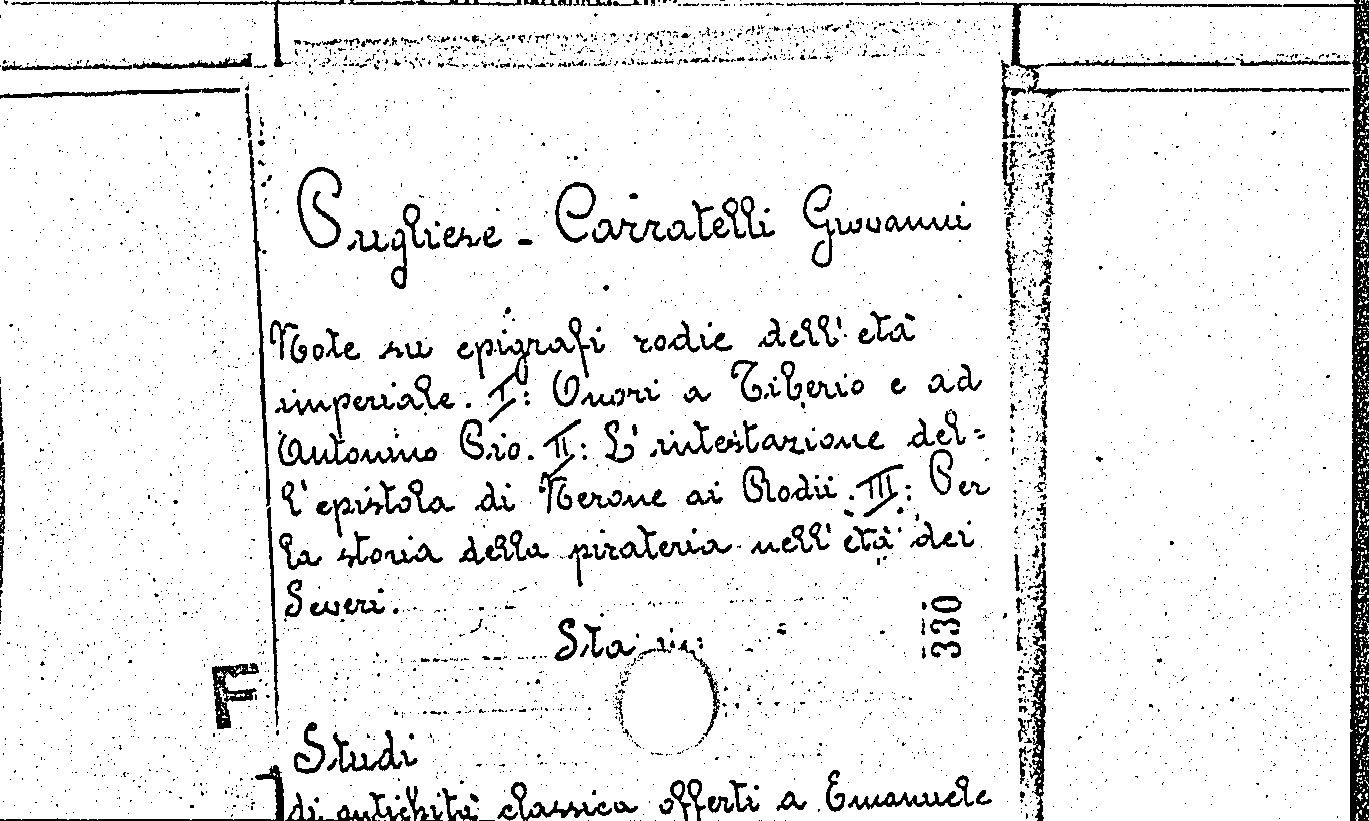 Pugliese - Carratelli Giovanni
Note su epigrafi rodie dell'età
imperiale. I: Onori a Tiberio e ad
Antonino Pio. II: L'intestazione del=
l'epistola di Nerone ai Rodii. III: Per
la storia della pirateria nell'età dei
Severi.
330
F
Studi
di antichità classica offerti a Emanuele